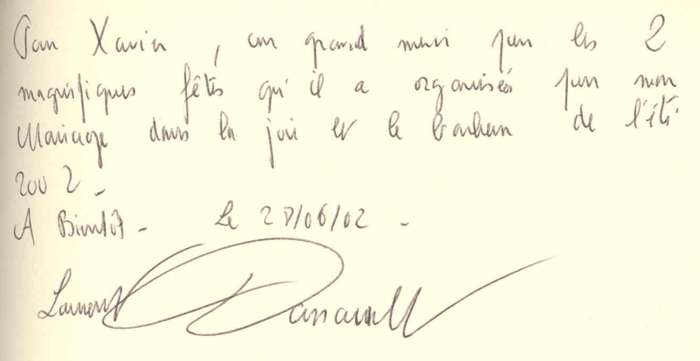 Pour Xavier, un grand merci pour les 2
magnifiques fêtes qu'il a organisées pour mon
Mariage dans la joie et le bonheur de l'été
2002 -
A Bientôt - Le 28/06/02 -
Laurent